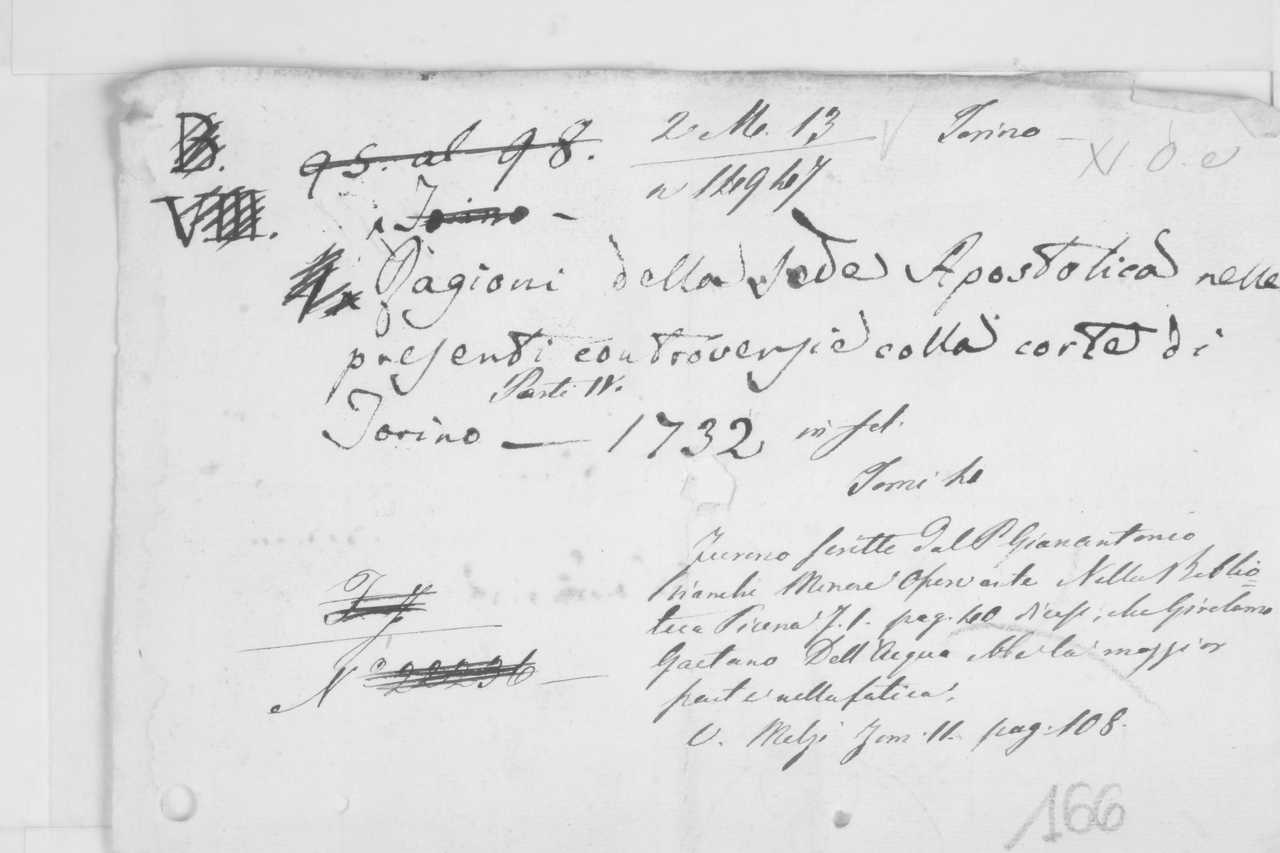 B. 95. al 98. 2. M. 13 Torino
VIII. Torino - n 14947
Ragioni della Sede Apostolica nelle
presenti controversie colla corte di
Parti IV.
Torino — 1732 in fol.
Tomi 4
Furono scritte dal P. Gianantonio
Bianchi Minore Osservante Nella Biblio=
teca Picena T. 1. pag. 40 dicesi, che Girolamo
Gaetano Dell'Acqua ebbe la maggior
parte nella fatica.
N.° 22236
V. Melzi Tom. II. pag. 108.
166